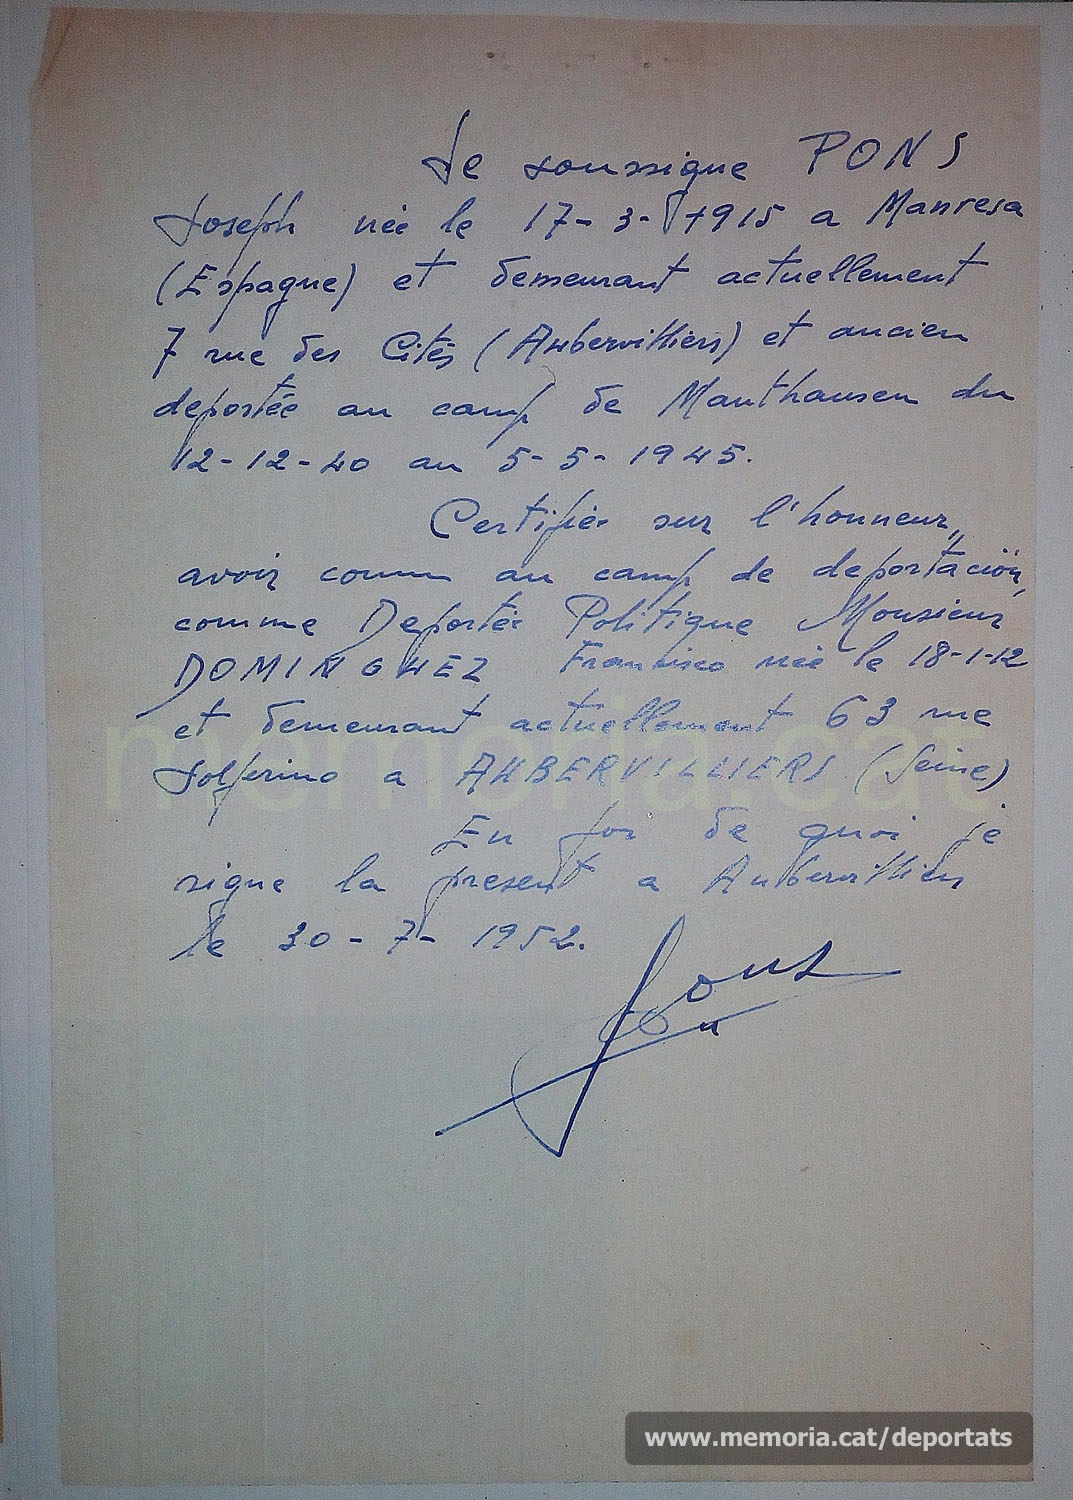 Je soussigne PONS
Joseph née le 17-3-1915 a Manresa
(Espagne) et demeurant actuellement
7 rue des Cités (Aubervilliers) et ancien
deportée au camp de Mauthausen du
12-12-40 au 5-5-1945.
Certifiée sur l'honneur,,
avoir connu au camp de deportación,
comme Deportée Politique Monsieur
DOMINGUEZ Francisco née le 18-1-12
et demeurant actuellement 63 rue
Solferino a AUBERVILLIERS (Seine)
En foi de quoi je
signe la present a Aubervilliers
le 30-7-1952.
Pons
memoria.cat
www.memoria.cat/deportats